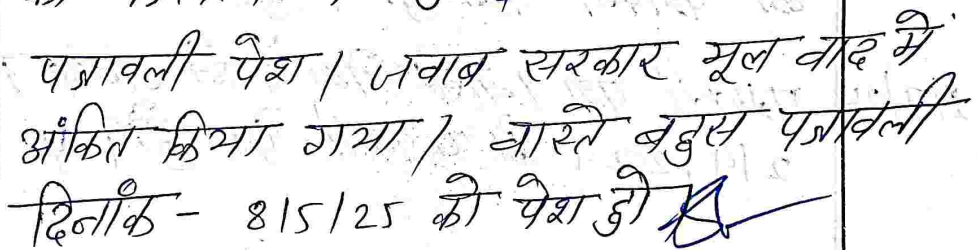 पत्रावली पेश / जवाब सरकार मूल वाद में
अंकित किया गया / वास्ते बहस पत्रावली
दिनांक - 8/5/25 को पेश हो